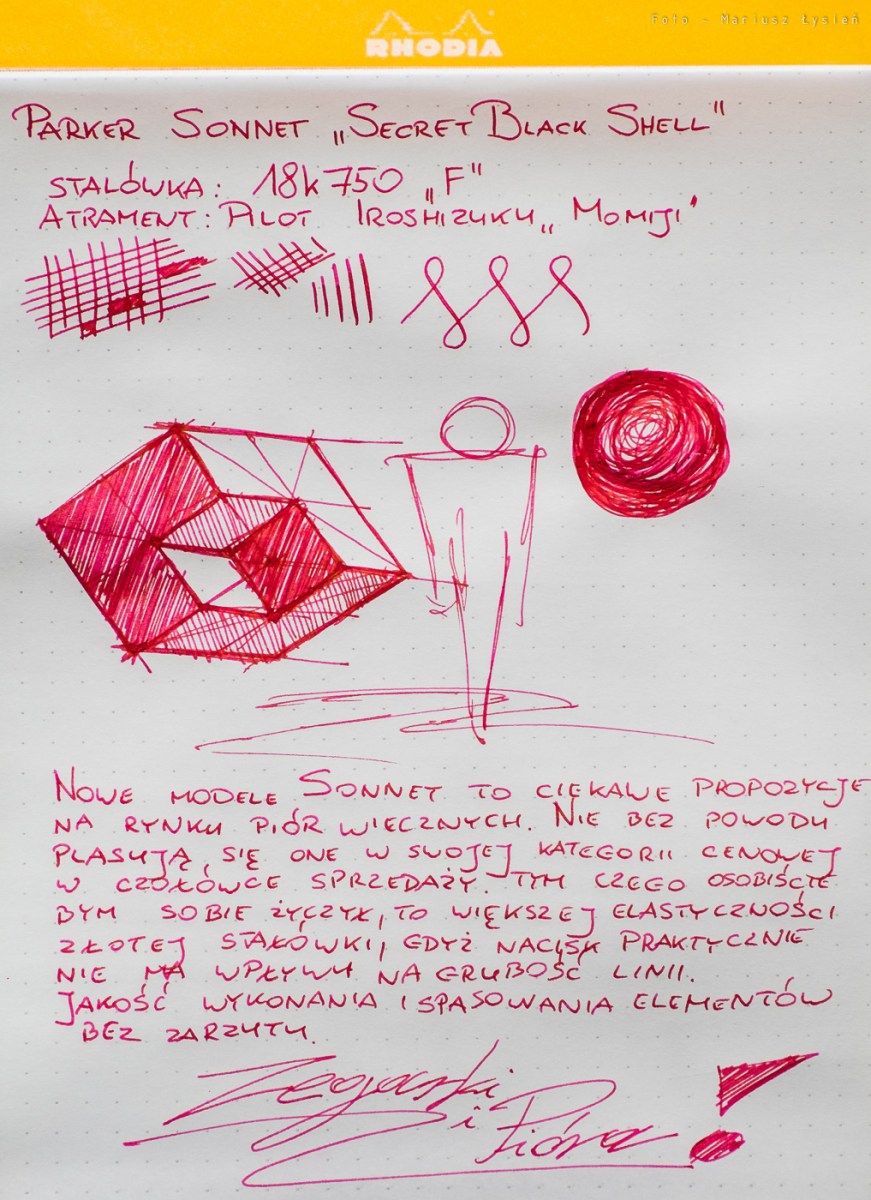 Foto - Mariusz Łysień
RHODIA
PARKER SONNET „SECRET BLACK SHELL"
STALÓWKA: 18k 750 „F"
ATRAMENT: PILOT IROSHIZUKU „MOMIJI"
NOWE MODELE SONNET TO CIEKAWE PROPOZYCJE
NA RYNKU PIÓR WIECZNYCH. NIE BEZ POWODU
PLASUJĄ SIĘ ONE W SWOJEJ KATEGORII CENOWEJ
W CZOŁÓWCE SPRZEDAŻY. TYM CZEGO OSOBIŚCIE
BYM SOBIE ŻYCZYŁ, TO WIĘKSZEJ ELASTYCZNOŚCI
ZŁOTEJ STALÓWKI, GDYŻ NACISK PRAKTYCZNIE
NIE MA WPŁYWU NA GRUBOŚĆ LINII.
JAKOŚĆ WYKONANIA I SPASOWANIA ELEMENTÓW
BEZ ZARZUTU.
Zegarki
i Pióra!